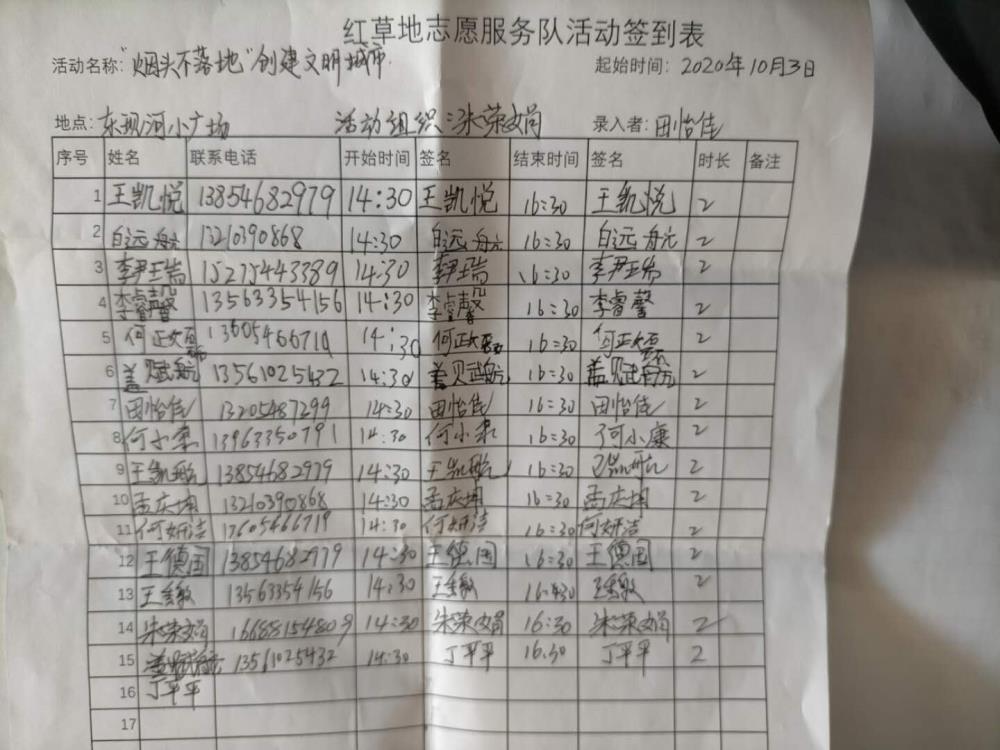 红草地志愿服务队活动签到表
活动名称:"烟头不落地"创建文明城市 起始时间: 2020年10月3日
地点: 东现河小广场 活动组织:朱荣娟 录入者: 田怡佳
序号 姓名 联系电话 开始时间 签名 结束时间 签名 时长 备注
1 王凯悦 13854682979 14:30 王凯悦 16:30 王凯悦 2
2 白远舟亢 13210390868 14:30 白远舟亢 16:30 白远舟亢 2
3 李尹瑞 15275443389 14:30 李尹瑞 16:30 李尹瑞 2
4 李睿馨 13563354156 14:30 李睿馨 16:30 李睿馨 2
5 何政 14:30 何政 16:30 何政 2
6 盖赋航 13561025432 14:30 盖赋航 16:30 盖赋航 2
7 田怡佳 13205487299 14:30 田怡佳 16:30 田怡佳 2
8 何小康 13963350791 14:30 何小康 16:30 何小康 2
9 王凯航 13854682979 14:30 王凯航 16:30 王凯航 2
10 孟庆坤 13210390868 14:30 孟庆坤 16:30 孟庆坤 2
11 何妍洁 13605466719 14:30 何妍洁 16:30 何妍洁 2
12 王德国 13854682979 14:30 王德国 16:30 王德国 2
13 13563354156 14:30 16:30 2
14 朱荣娟 16688154809 14:30 朱荣娟 16:30 朱荣娟 2
15 盖赋航 13561025432 14:30 丁平平 16:30 丁平平 2
16 丁平平
17